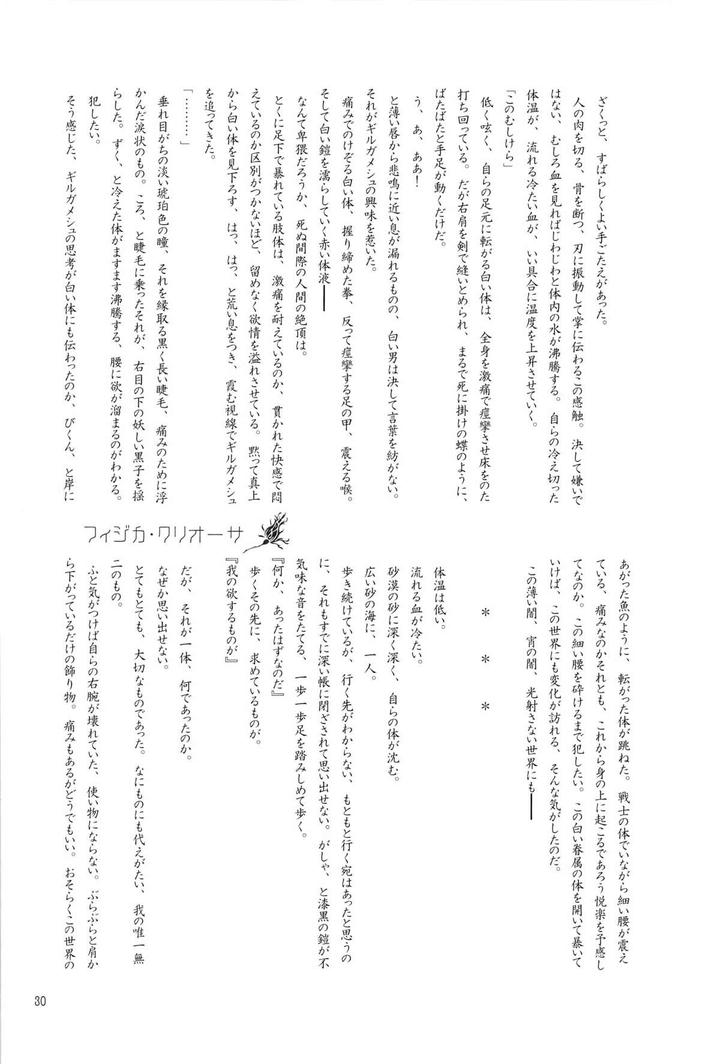 ざくっと、すばらしくよい手ごたえがあった。
人の肉を切る、骨を断つ、刃に振動して掌に伝わるこの感触。決して嫌いで
はない、むしろ血を見ればじわじわと体内の水が沸騰する。自らの冷え切った
体温が、流れる冷たい血が、いい具合に温度を上昇させていく。
「このむしけら」
低く呟く、自らの足元に転がる白い体は、全身を激痛で痙攣させ床をのた
打ち回っている。だが右肩を剣で縫いとめられ、まるで死に掛けの蝶のように、
ばたばたと手足が動くだけだ。
う、あ、ああ!
と薄い唇から悲鳴に近い息が漏れるものの、白い男は決して言葉を紡がない。
それがギルガメシュの興味を惹いた。
痛みでのけぞる白い体、握り締めた拳、反って痙攣する足の甲、震える喉。
そして白い鎧を濡らしていく赤い体液――
なんて卑猥だろうか、死ぬ間際の人間の絶頂は。
とくに足下で暴れている肢体は、激痛を耐えているのか、貫かれた快感で悶
えているのか区別がつかないほど、留めなく欲情を溢れさせている。黙って真上
から白い体を見下ろす、はっ、はっ、と荒い息をつき、霞む視線でギルガメシュ
を追ってきた。
「………」
垂れ目がちの淡い琥珀色の瞳、それを縁取る黒く長い睫毛、痛みのために浮
かんだ涙状のもの。ころ、と睫毛に乗ったそれが、右目の下の妖しい黒子を揺
らした。ずく、と冷えた体がますます沸騰する、腰に欲が溜まるのがわかる。
犯したい。
そう感じた、ギルガメシュの思考が白い体にも伝わったのか、びくん、と岸に
フィジカ・クリオーサ
あがった魚のように、転がった体が跳ねた。戦士の体でいながら細い腰が震え
ている、痛みなのかそれとも、これから身の上に起こるであろう悦楽を予感し
てなのか。この細い腰を砕けるまで犯したい。この白い眷属の体を開いて暴いて
いけば、この世界にも変化が訪れる、そんな気がしたのだ。
この薄い闇、宵の闇、光射さない世界にも――
＊　＊　＊
体温は低い。
流れる血が冷たい。
砂漠の砂に深く深く、自らの体が沈む。
広い砂の海に、一人。
歩き続けているが、行く先がわからない、もともと行く宛はあったと思うの
に、それもすでに深い帳に閉ざされて思い出せない。がしゃ、と漆黒の鎧が不
気味な音をたてる、一歩一歩足を踏みしめて歩く。
『何か、あったはずなのだ』
歩くその先に、求めているものが。
『我の欲するものが』
だが、それが一体、何であったのか。
なぜか思い出せない。
とてもとても、大切なものであった。なにものにも代えがたい、我の唯一無
二のもの。
ふと気がつけば自らの右腕が壊れていた、使い物にならない。ぶらぶらと肩か
ら下がっているだけの飾り物。痛みもあるがどうでもいい。おそらくこの世界の
30